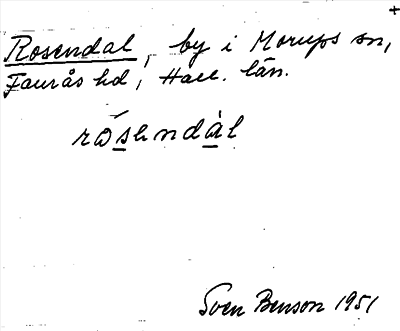 +
Rosendal, by i Morups sn,
Faurås hd, Hall. län.
rósendàl
Sven Benson 1951